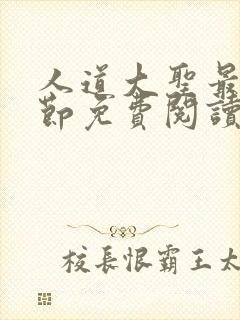 人道大聖最
節免費閱讀
校長恨霸王太